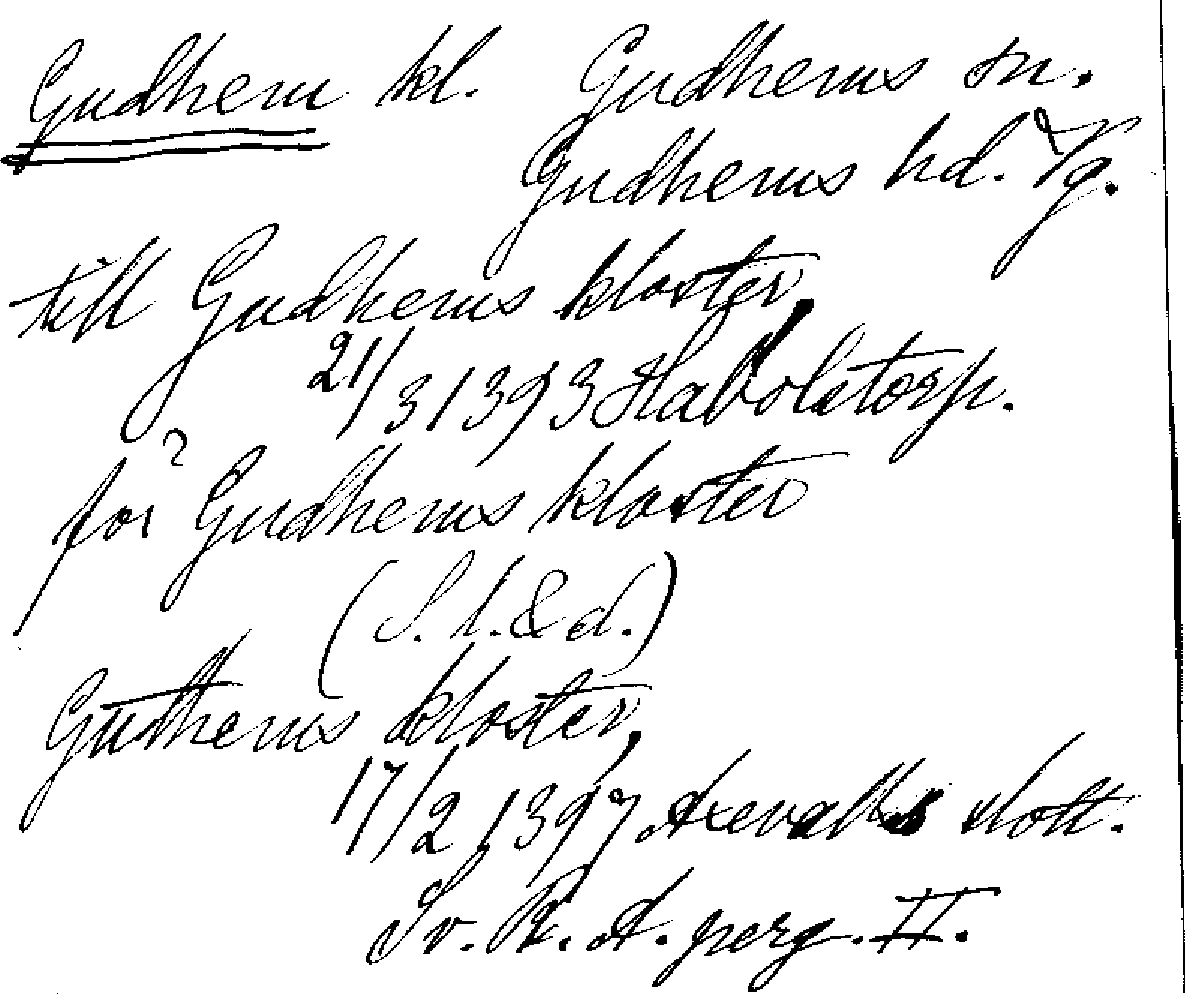 Gudhem kl. Gudhems sn.
Gudhems hd. Vg.
till Gudhems kloster,
21/3 1393 Habolstorp.
för Gudhems kloster
(S. l. & d.)
Gudhems kloster,
17/2 1397 Axevalls slott.
Sv. R. A. perg. II.